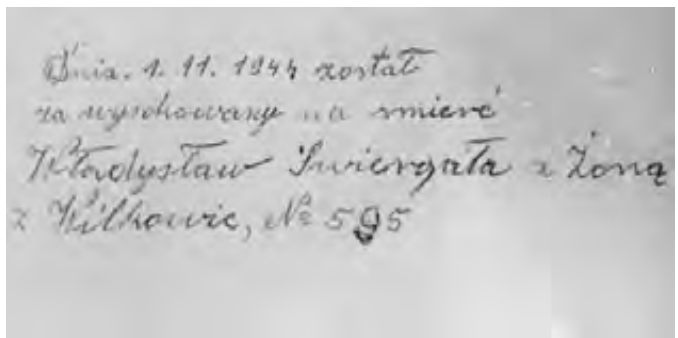 Dnia. 1. 11. 1944 został
za wyrokowany na smierć
Władysław Swiergała z Żoną
z Wilkowic, № 595